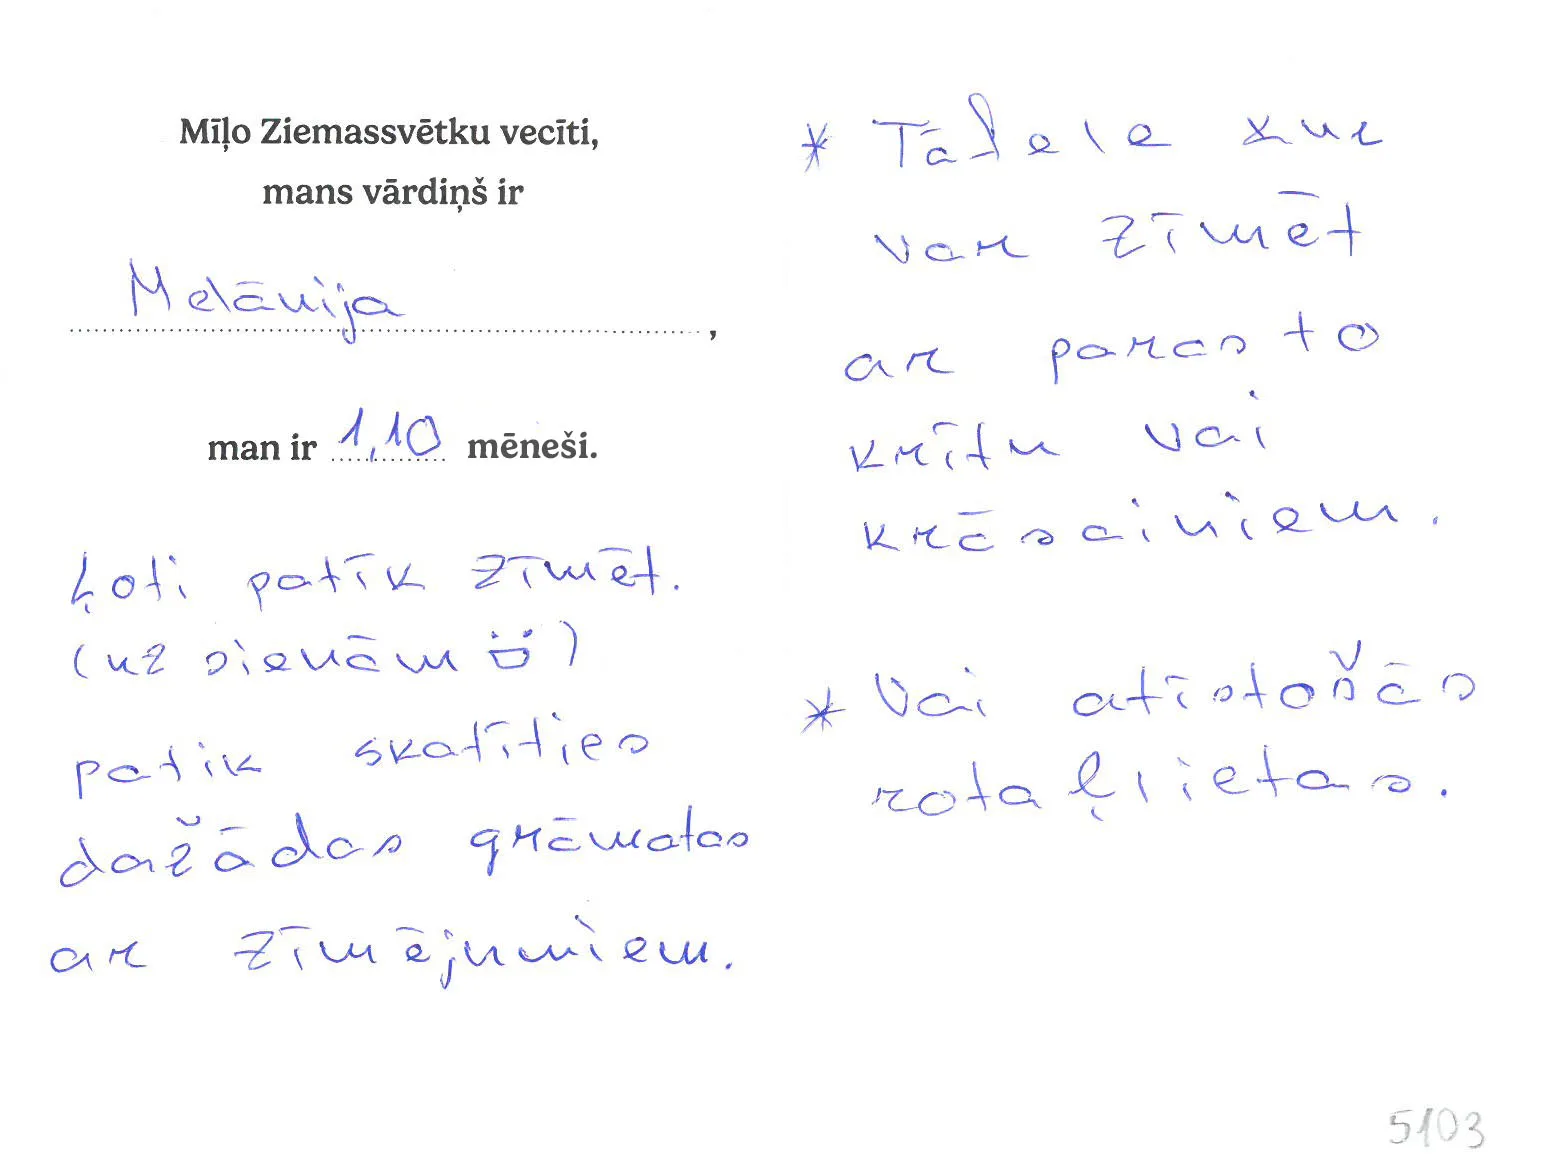 Mīļo Ziemassvētku vecīti,
mans vārdiņš ir
Melānija,
man ir 1,10 mēneši.
Ļoti patīk zīmēt.
(uz sienām)
patīk skatīties
dažādas grāmatas
ar zīmējumiem.
* Tāfele kur
var zīmēt
ar parasto
krītu vai
krāsainiem.
* Vai atīstošās
rotaļlietas.
5103